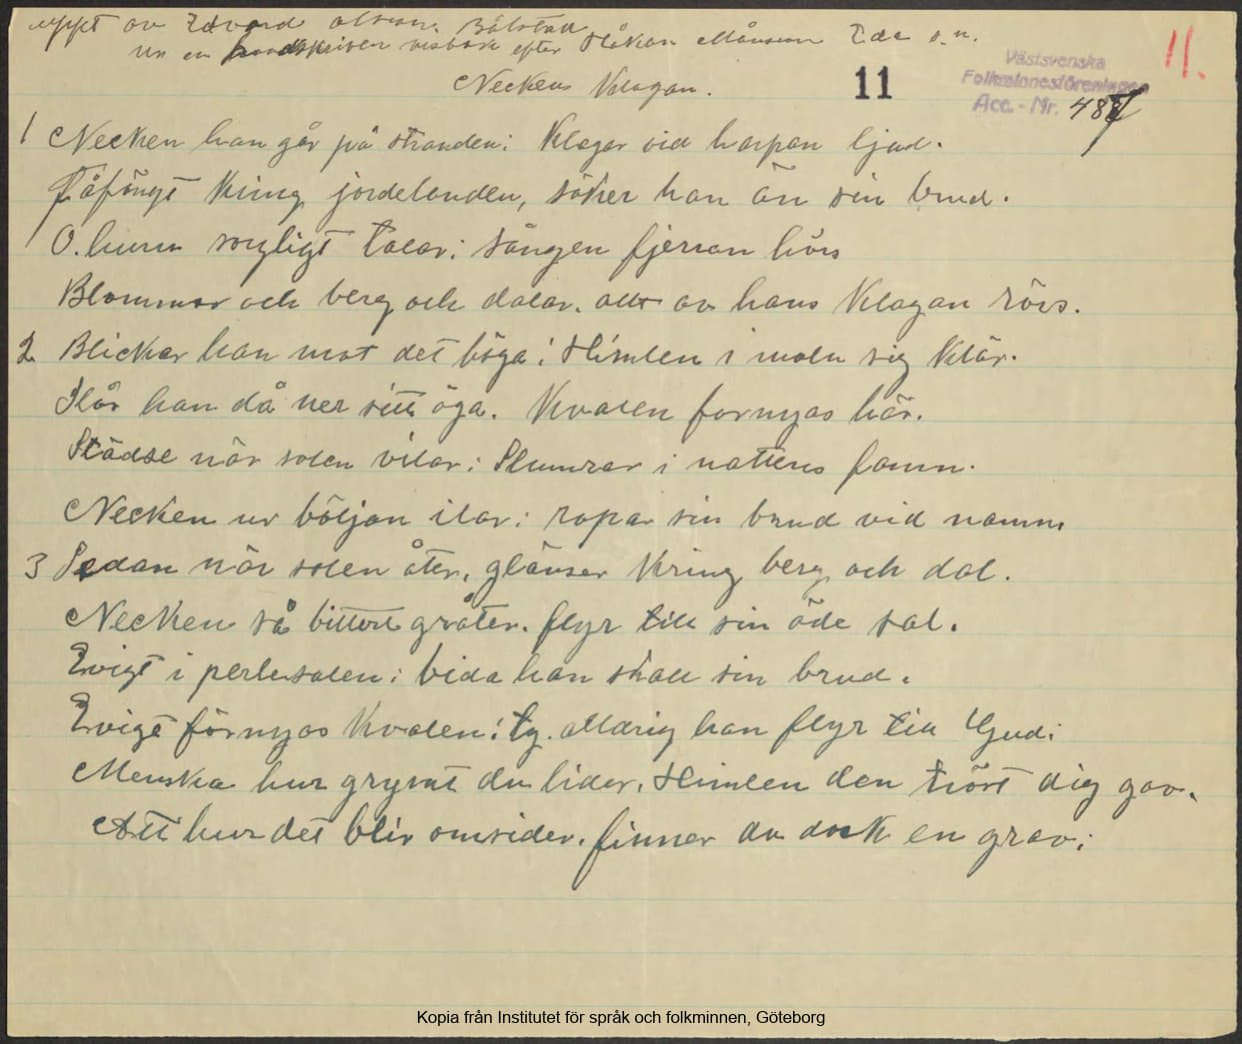 uppt av Edvard Olsson. Bälstad
ur en handskriven visbok efter Håkan Månsson Eda s.n.
11.
Neckens Klagan.
11
Västsvenska
Folkminnesföreningen
Acc. - Nr. 487
1 Necken han går på stranden: Klagar vid harpan ljud.
Fåfängt Kring jordelanden, söker han än sin brud.
O. huru sorgligt talar: sången fjerran hörs
Blommor och berg och dalar. allt av hans Klagan rörs.
2 Blickar han mot det höga: Himlen i moln sig Klär.
Slår han då ner sitt öga. Kvalen fornyas här.
Städse när solen vilar: Slumrar i nattens famn.
Necken ur böljan ilar: ropar sin brud vid namn.
3 Sedan när solen åter, glänser Kring berg och dal.
Necken så bittert gråter. flyr till sin öde sal.
Evigt i perlesalen: bida han skall sin brud.
Evigt förnyas Kvalen: ty. alldrig han flyr till Gud:
Menska hur grymt du lider. Himlen den tröst dig gav.
Att hur det blir omsider. finner du dock en grav:
Kopia från Institutet för språk och folkminnen, Göteborg